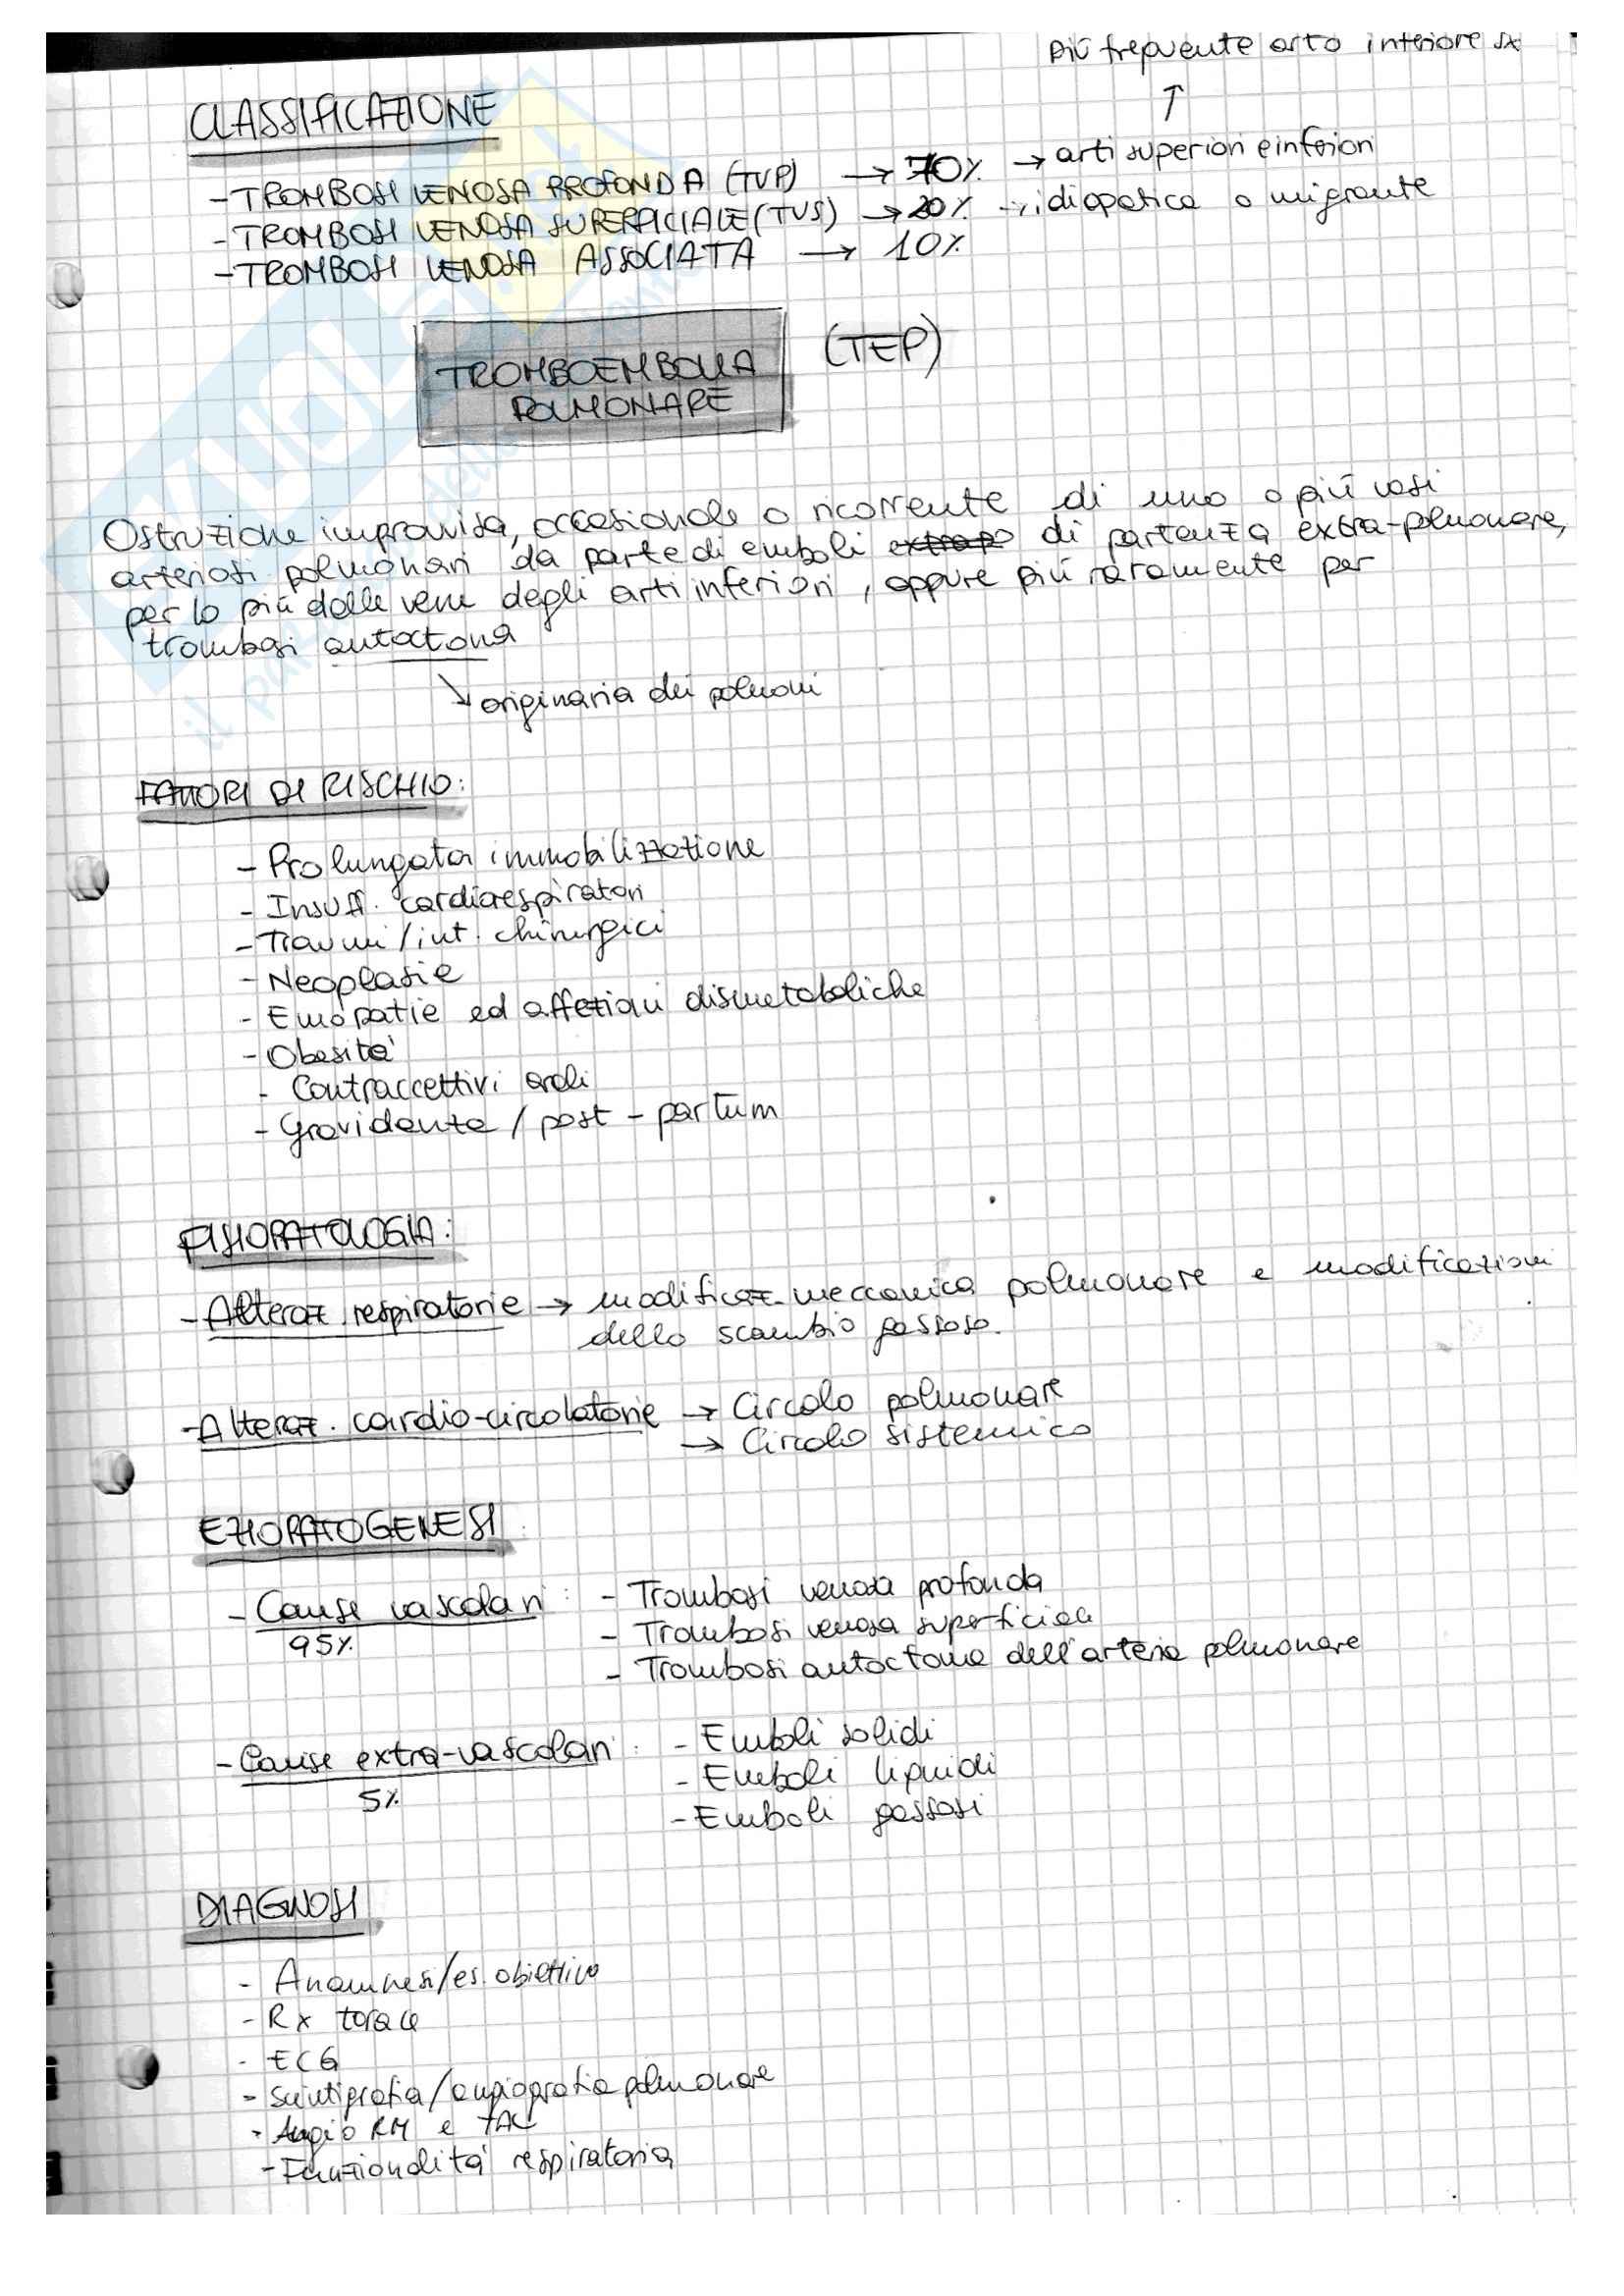 più frequente arto inferiore sx
↑
CLASSIFICAZIONE
- TROMBOSI VENOSA PROFONDA (TVP) → 70% → arti superiori e inferiori
- TROMBOSI VENOSA SUPERFICIALE (TVS) → 20% → idiopatica o migrante
- TROMBOSI VENOSA ASSOCIATA → 10%
TROMBOEMBOLIA (TEP)
POLMONARE
Ostruzione improvvisa, occasionale o ricorrente di uno o più vasi
arteriosi polmonari da parte di emboli di partenza extra-polmonare,
per lo più dalle vene degli arti inferiori, oppure più raramente per
trombosi autoctona
↘ originaria dei polmoni
FATTORI DI RISCHIO:
- Prolungata immobilizzazione
- Insuff. cardiorespiratori
- Traumi/int. chirurgici
- Neoplasie
- Emopatie ed affezioni dismetaboliche
- Obesità
- Contraccettivi orali
- Gravidanza / post-partum
FISIOPATOLOGIA:
- Alteraz. respiratorie → modificaz. meccanica polmonare e modificazioni
dello scambio gassoso.
- Alteraz. cardio-circolatorie → Circolo polmonare
→ Circolo sistemico
EZIOPATOGENESI
- Cause vascolari: - Trombosi venosa profonda
95% - Trombosi venosa superficiale
- Trombosi autoctona dell'arteria polmonare
- Cause extra-vascolari: - Emboli solidi
5% - Emboli liquidi
- Emboli gassosi
DIAGNOSI
- Anamnesi/es. obiettivo
- Rx torace
- ECG
- Scintigrafia/angiografia polmonare
- Angio RM e TAC
- Funzionalità respiratoria